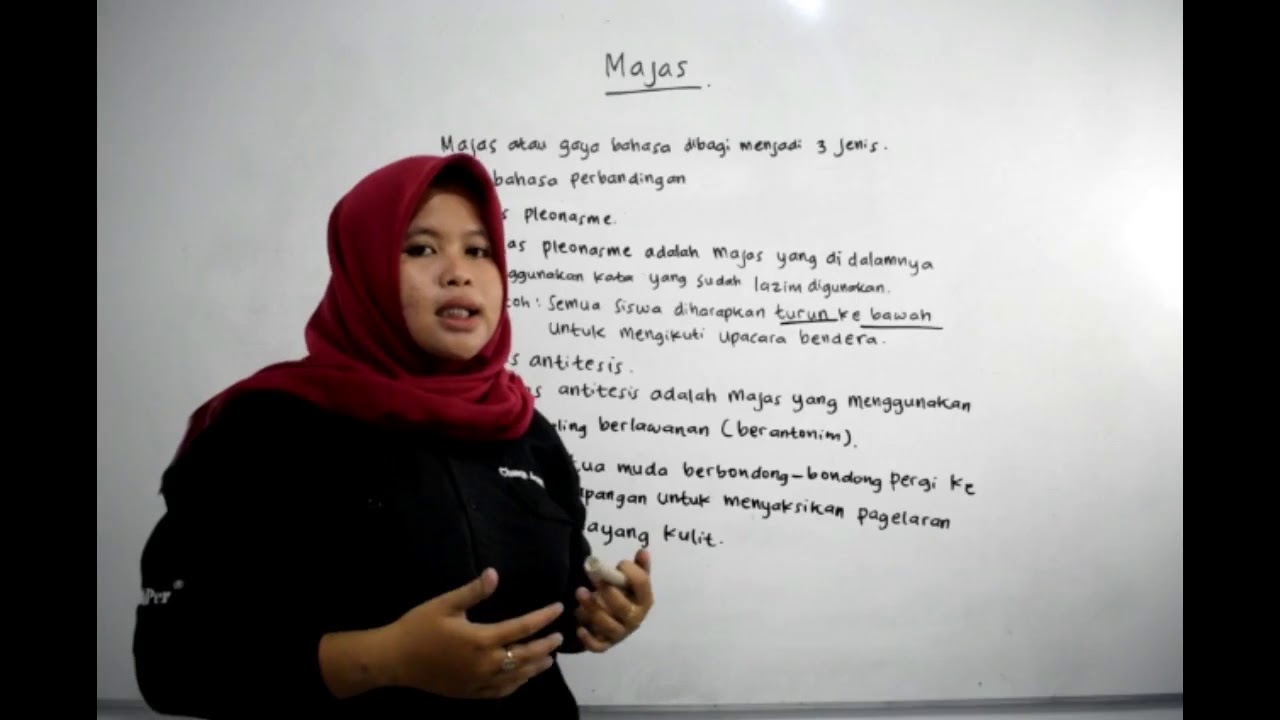 Majas.
Majas atau gaya bahasa dibagi menjadi 3 jenis.
bahasa perbandingan
pleonasme.
pleonasme adalah majas yang di dalamnya
kata yang sudah lazim digunakan.
: Semua siswa diharapkan turun ke bawah
untuk mengikuti upacara bendera.
antitesis.
antitesis adalah majas yang menggunakan
berlawanan (berantonim).
muda berbondong-bondong pergi ke
untuk menyaksikan pagelaran
kulit.